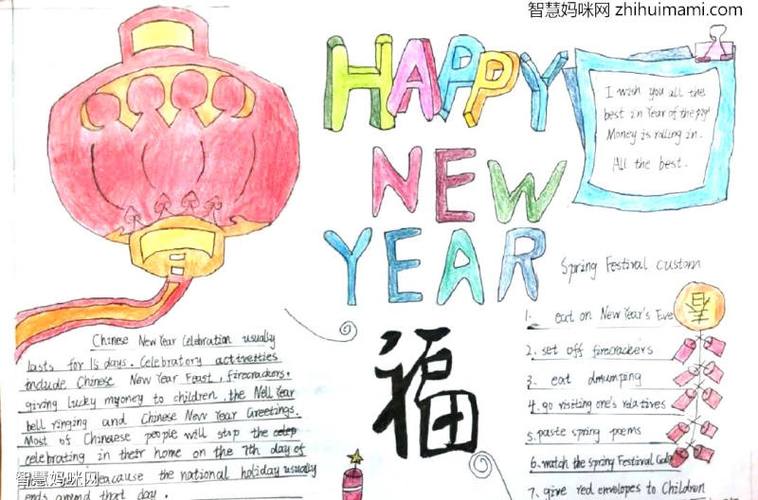 智慧妈咪网 zhihuimami.com
HAPPY
NEW
YEAR
I wish you all the
best in Year of the pig!
Money is rolling in.
All the best.
Chinese New Year Celebration usually
lasts for 15 days. Celebratory
include Chinese New Year Feast, firecrackers,
giving lucky myoney to children, the Nell Year
bell ringing and Chinese New Year Greetings.
Most of Chineaese people will stop the
celebrating in their home on the 7th day of
because the national holiday usually
ends around that day.
智慧妈咪网
福
Spring Festival custom
1. eat on New Year's Eve
2. set off firecrackers
3. eat dmumping
4. go visiting one's relatives
5. paste spring poems
6. match the Spring Festival Gala
7. give red envelopes to Children